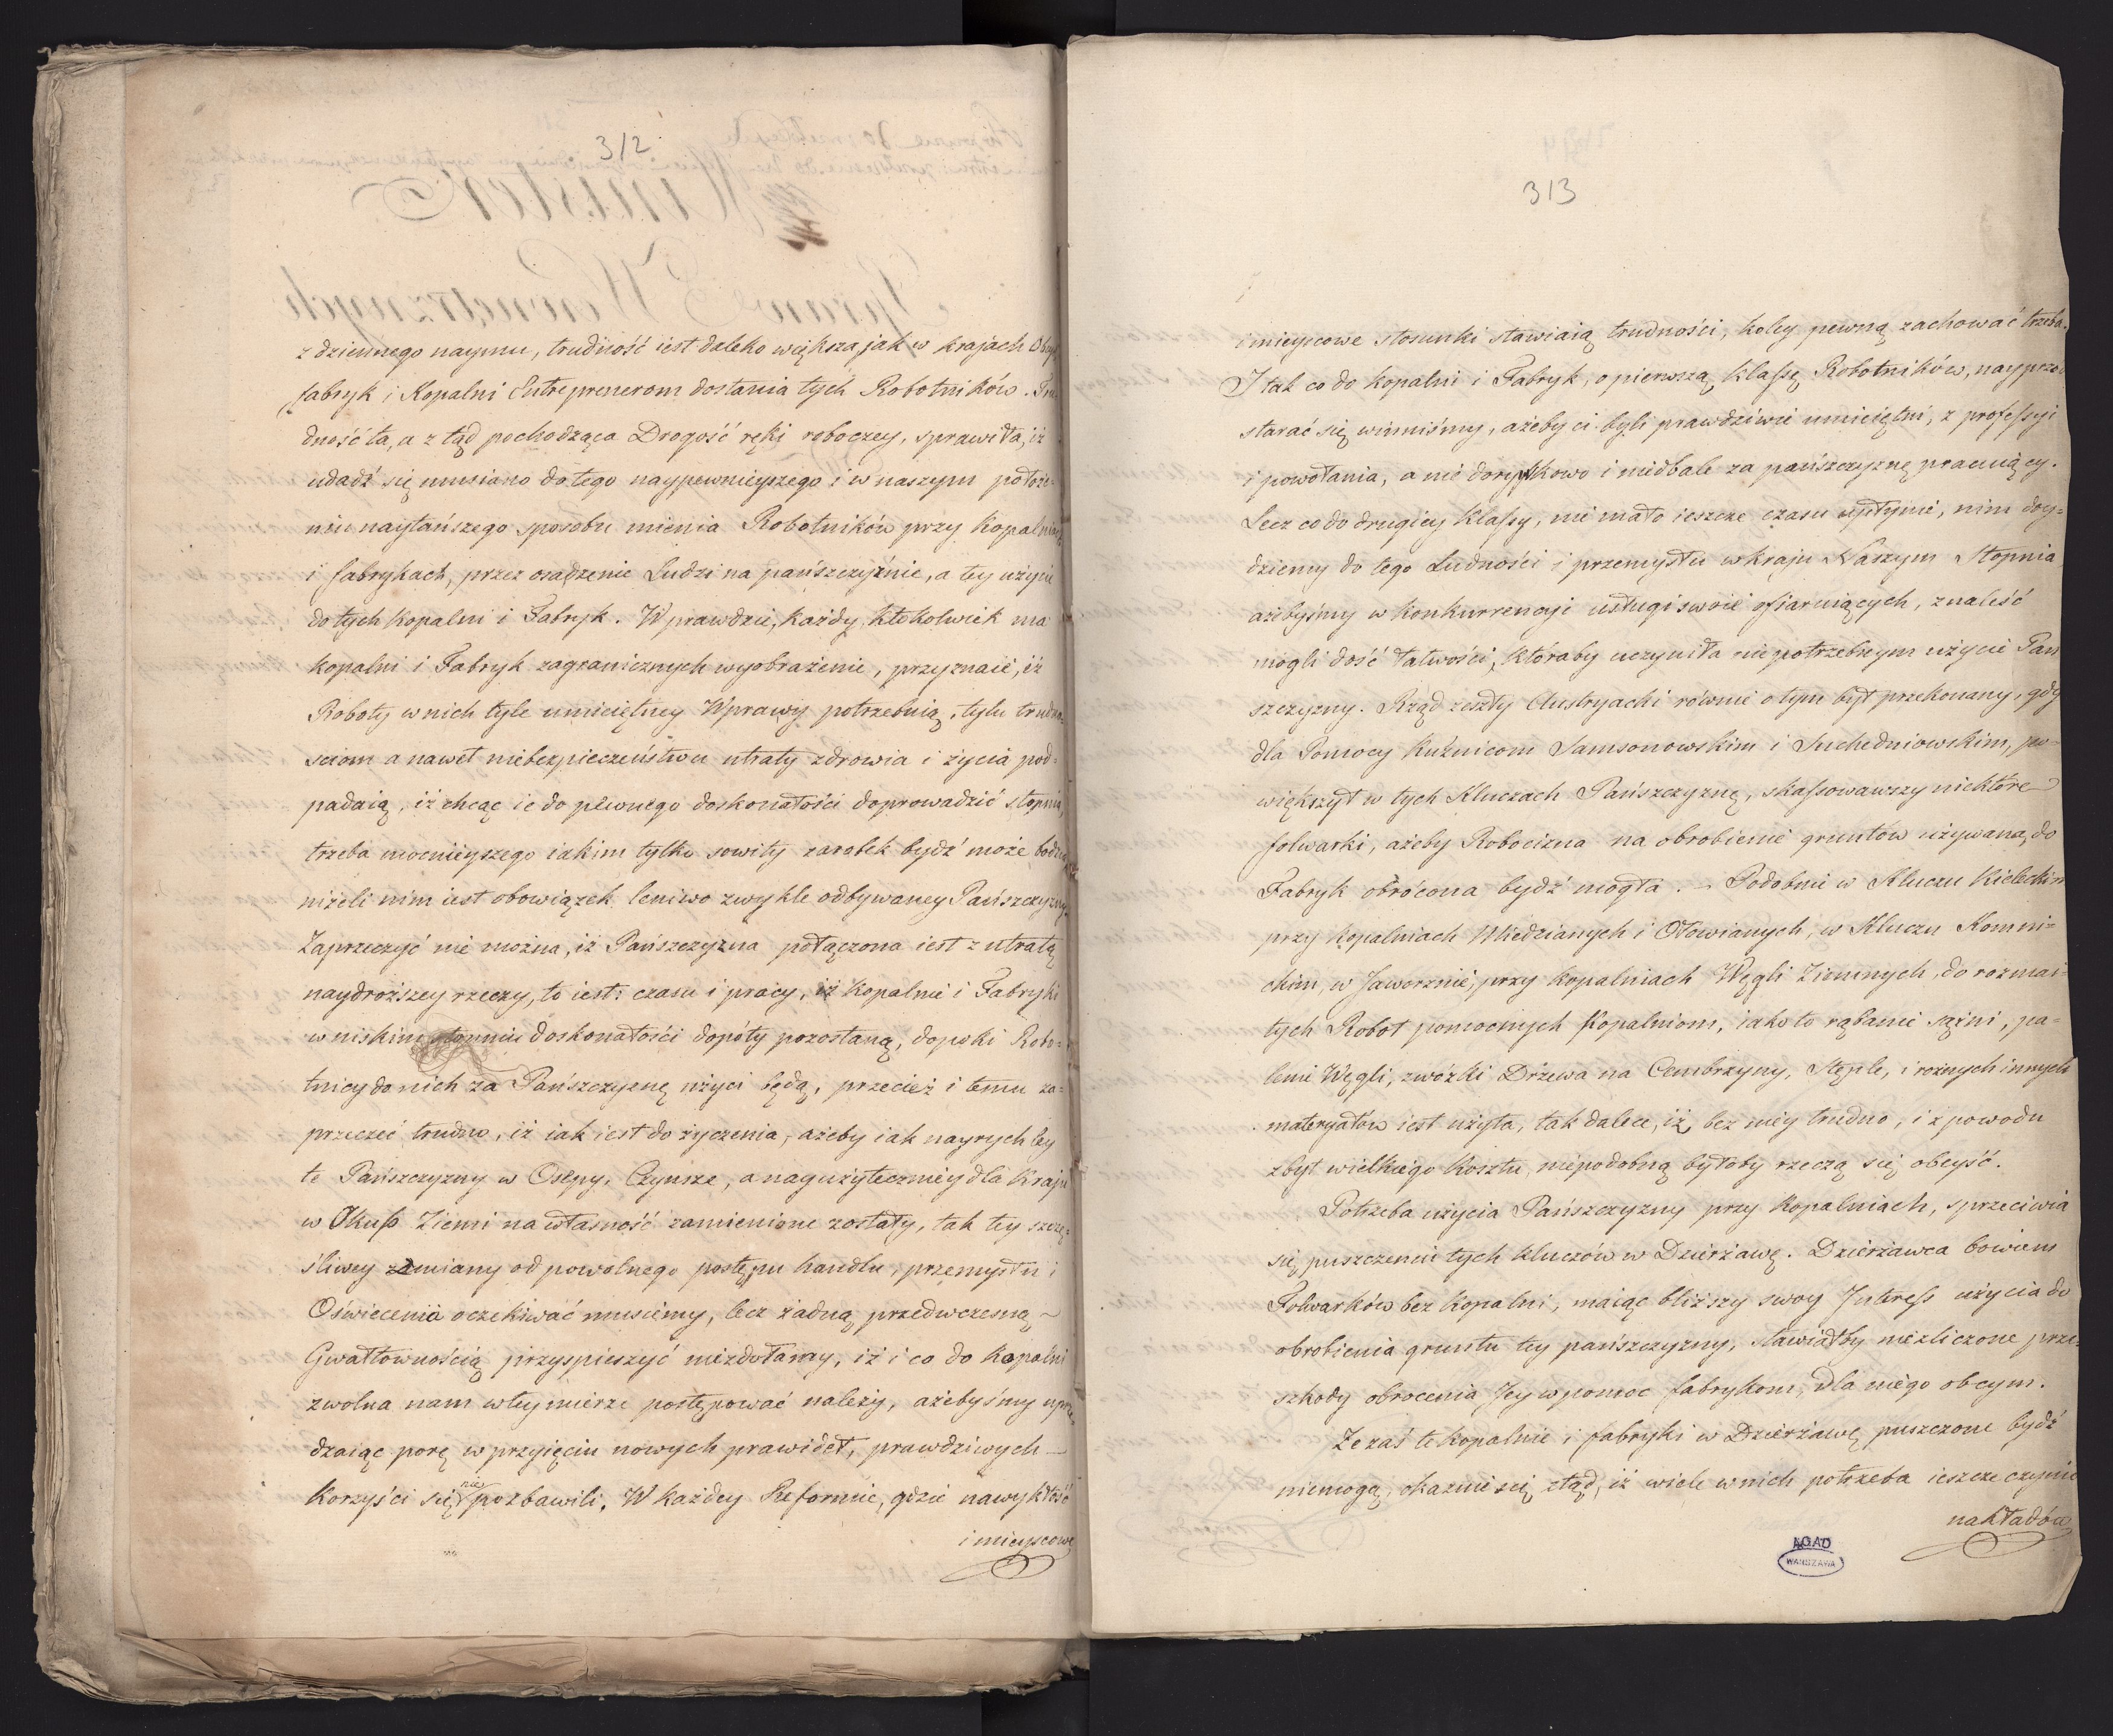 312
z dziennego naymu, trudność iest daleko większa jak w krajach Obcych
fabryk i Kopalni Entreprenerom dostania tych Robotników. Tru
dność ta, a z tąd pochodząca Drogość ręki roboczey, sprawiła, iż
udadź się musiano do tego naypewnieyszego i w naszym położe-
niu naytańszego sposobu mienia Robotników przy kopalniach
i fabrykach, przez osadzenie Ludzi na pańszczyźnie, a tey użycie
do tych kopalni i Fabryk. Wprawdzie, każdy, ktokolwiek ma
kopalni i Fabryk zagranicznych wyobrażenie, przyznaie, iż
Roboty w nich tyle umieiętney Wprawy potrzebuią, tylu trudno-
sciom a nawet niebezpieczeństwu utraty zdrowia i życia pod-
padaią, iż chcąc ie do pewnego doskonałości doprowadzić stopnia,
trzeba mocnieyszego iakim tylko sowity zarobek bydź może bodźca
niżeli nim iest obowiązek leniwo zwykle odbywaney Pańszczyzny.
Zaprzeczyć nie można, iż Pańszczyzna połączona iest z utratą
naydroższey rzeczy, to iest: czasu i pracy, iż kopalnie i Fabryki
w niskim stopniu doskonałości dopóty pozostaną, dopóki Robo-
tnicy do nich za Pańszczyznę użyci będą, przecież i temu za-
przeczeć trudno, iż iak iest do życzenia, ażeby iak nayrychley
te Pańszczyzny w Osepy, Czynsze, a nayużyteczniey dla kraju
w Okup Ziemi na własność zamienione zostały, tak tey szczę-
śliwey zamiany od powolnego postępu handlu, przemysłu i
Oświecenia oczekiwać musiemy, lecz żadną przedwczesną
Gwałtownością przyspieszyć niezdołamy, iż i co do kopalni
zwolna nam w tey mierze postępować należy, ażebyśmy uprze-
dzaiąc porę w przyięciu nowych prawideł, prawdziwych
korzyści się nie pozbawili. W każdey Reformie, gdzie nawykłość
i mieyscowe
313
i mieyscowe stosunki stawiaią trudności, koley pewną zachować trzeba.
I tak co do kopalni i Fabryk, o pierwszą klassę Robotników, nayprzód
starać się winniśmy, ażeby ci byli prawdziwie umieiętni, z professyi
i powołania, a nie dorywkowo i niedbale za pańszczyznę pracuiący.
Lecz co do drugiey klassy, nie mało ieszcze czasu upłynie, nim doy-
dziemy do tego Ludności i przemysłu w kraju Naszym Stopnia
ażebyśmy w konkurrencyi usługi swoie ofiaruiących, znaleść
mogli dość łatwości, któraby uczyniła niepotrzebnym użycie Pań
szczyzny. Rząd zeszły Austryacki równie o tym był przekonany, gdy
dla Pomocy kuźnicom Samsonowskim i Suchedniowskim, po-
większył w tych Kluczach Pańszczyznę, skassowawszy niektóre
folwarki, ażeby Robocizna na obrobienie gruntów używana, do
Fabryk obrócona bydź mogła. – Podobnie w Kluczu Kieleckim
przy kopalniach Miedzianych i Ołowianych, w Kluczu Komni-
ckim, w Jaworznie, przy kopalniach Węgli Ziemnych, do rozmai-
tych Robot pomocnych kopalniom, iako to rąbanie sążni, pa-
lenie Węgli, zwózki Drzewa na Cembrzyny, Stęple, i roznych innych
materyałów iest użyta, tak dalece, iż bez niey trudno, i z powodu
zbyt wielkiego kosztu, niepodobną byłoby rzeczą się obeyść.
Potrzeba użycia Pańszczyzny przy kopalniach, sprzeciwia
się puszczeniu tych kluczów w Dzierżawę. Dzierżawca bowiem
Folwarków bez kopalni, maiąc bliższy swoy Interess użycia do
obrobienia gruntu tey pańszczyzny, stawiałby niezliczone prze-
szkody obrocenia Jey w pomoc fabrykom, dla niego obcym.
Że zaś te kopalnie i fabryki w Dzierżawę puszczone bydź
niemogą, okazuie się ztąd, iż wiele w nich potrzeba ieszcze czynić
nakładów
AGAD
WARSZAWA